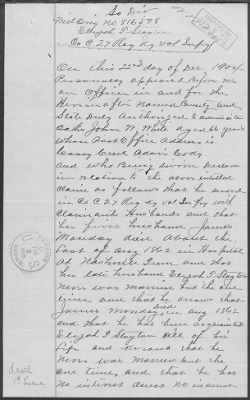 So Div
Wid Orig No 816578
Elijah P. Slayton
Co C 27 Reg Ky Vol Infy
On this 22nd day of Dec 1904
Personally appeared Before me
an Officer in and for the
Herein after Named County and
State Duly Authorized to administer
Oaths John W. White aged 66 years
Whose Post Office Address is
Casey Creek Adair Co Ky
and who Being sworn Declares
in relation to the above entitled
Claim as follows that he served
in Co C 27 Reg Ky Vol Inf with
Claimants Husband and that
her first husband James
Monday died about the
last of Aug 1862 in Hospital
at Nashville Tenn and that
his late husband Elijah P. Slayton
never was married but the one
time and that he knows that
James Monday died in Aug 1862
and that he has been acquainted
Elijah P. Slayton all of his
life and knows that he
never was married but the
one time and that he has
no interest direct no indirect
death
1st husband